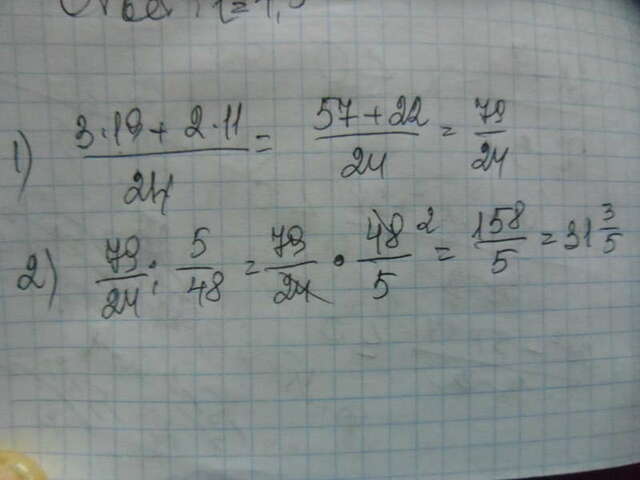 Ответ: 1,5
1) (3·19 + 2·11)/24 = (57 + 22)/24 = 79/24
2) 79/24 : 5/48 = 79/24 · 48/5 2 = 158/5 = 31 3/5